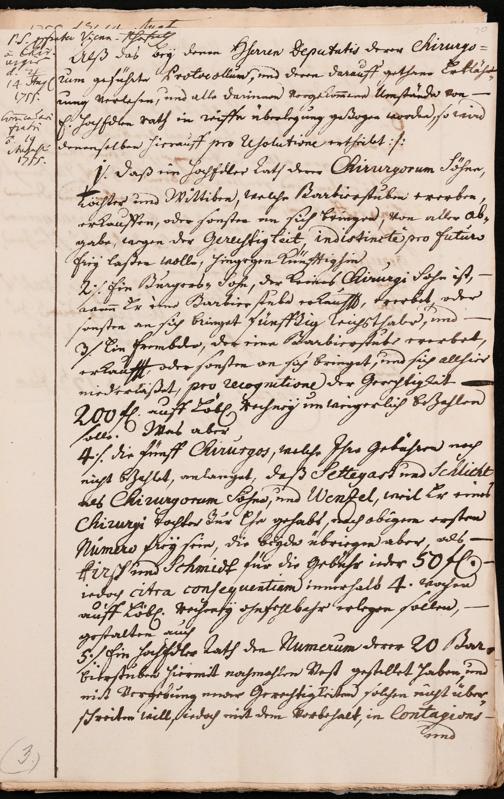 14 Aug
1755.
19
Augusti
1755.
Alß das bey denen Herren Deputatis derer Chirurgo-
rum geführte Protocollum, und deren darauff gethane Erkläh-
rung verlesen, und alle darinnen vorgekommene Umstände von
E. HochEdlen Rath in reiffe überlegung gezogen worden, so wird
denenselben hierauff pro Resolutione ertheilt:
1. Daß ein HochEdler Rath deren Chirurgorum Söhne,
Töchter und Wittiben, welche Barbierstuben ererben,
erkauffen, oder sonsten an sich bringen, von aller Ab-
gabe, wegen der Gerechtigkeit, indistincte pro futuro
frey laßen wolle, hingegen künfftighin
2. Ein Burgers Sohn, der keines Chirurgi Sohn ist,
wann Er eine Barbierstube erkaufft, ererbet, oder
sonsten an sich bringet fünffzig Reichsthaler, und
3. Ein frembder, der eine Barbierstube ererbet,
erkaufft oder sonsten an sich bringet, und sich allhier
niederläßet, pro recognitione der Gerechtigkeit
200 fl. auff Löbl. Rechney unweigerlich bezahlen
solle. Was aber
4. die fünff Chirurgos, welche Ihre Gebühren noch
nicht bezahlet, anlanget, daß Settegast und Schlicht
als Chirurgorum Söhne, und Wenzel, weil Er eines
Chirurgi Tochter zur Ehe gehabt, nach obigem ersten
Numero frey sein, die beyde übrigen aber, als
Hirsch und Schmidt für die Gebühr jeder 50 fl.
jedoch citra consequentiam innerhalb 4. Wochen
auff Löbl. Rechney ohnfehlbahr erlegen sollen,
gestalten auch
5. Ein HochEdler Rath den Numerum derer 20 Bar-
bierstuben hiermit nochmahlen vest gestellet haben, und
mit Vergebung neuer Gerechtigkeiten solchen nicht über-
schreiten will, jedoch mit dem Vorbehalt, in Contagions-
und
(3.)